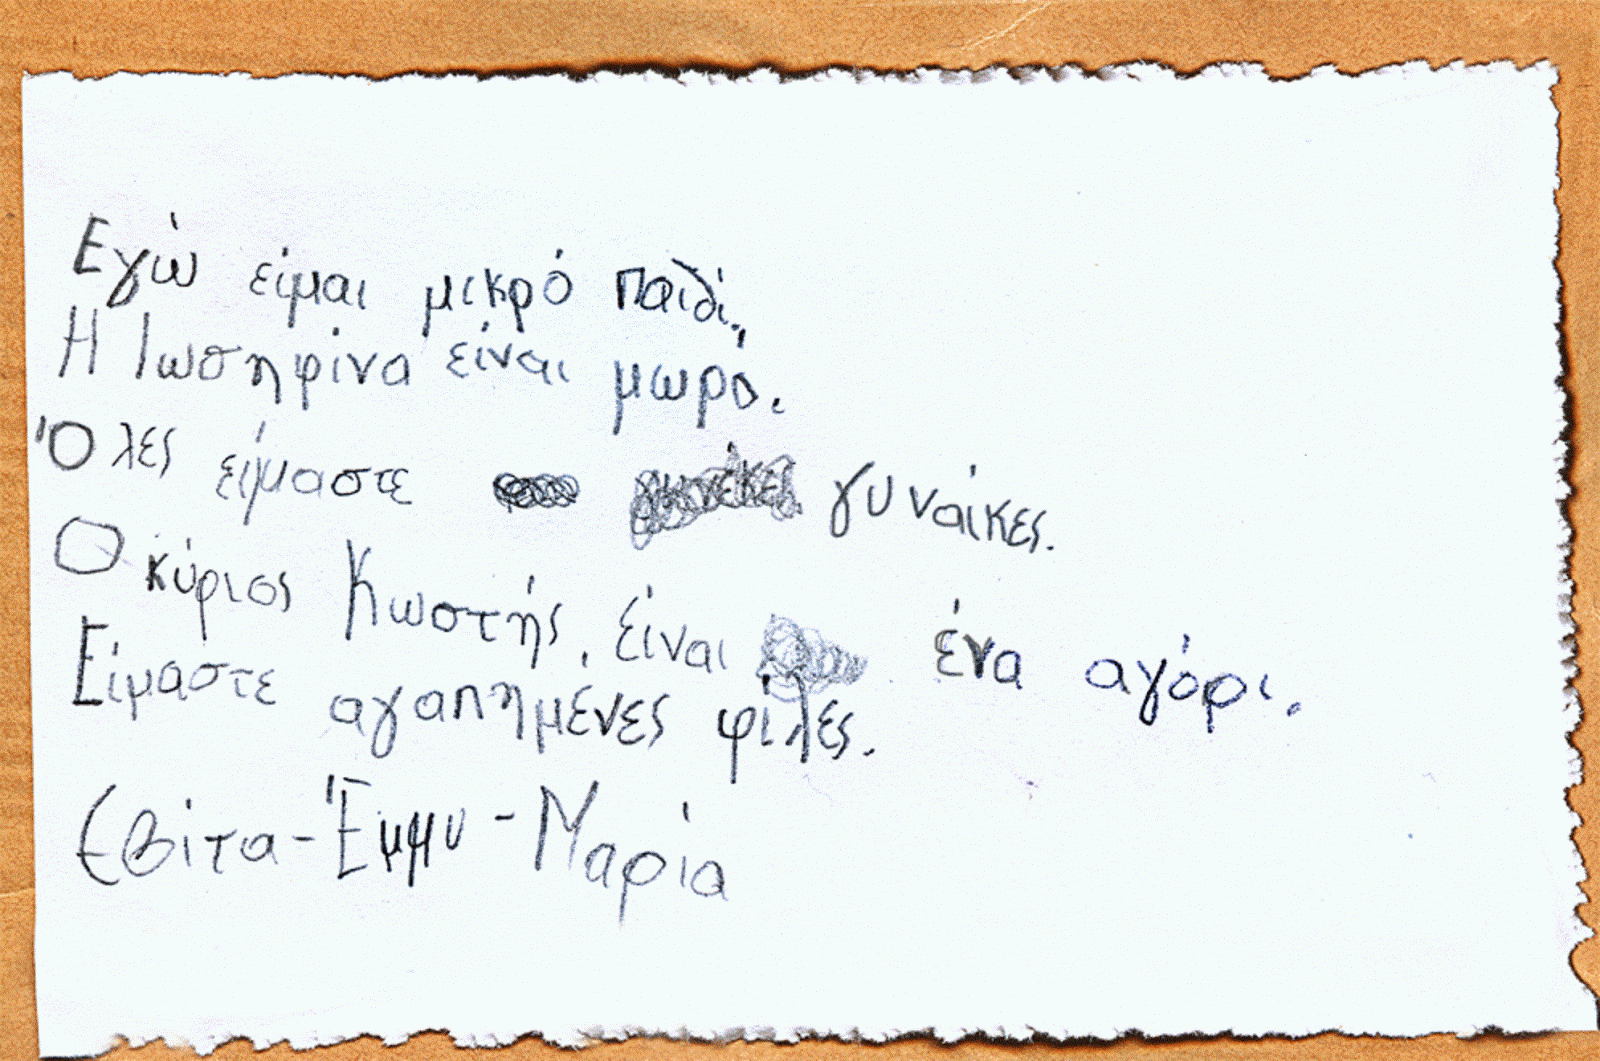 Εγώ είμαι μικρό παιδί.
Η Ιωσηφίνα είναι μωρό.
Όλες είμαστε γυναίκες.
Ο κύριος Κωστής, είναι ένα αγόρι.
Είμαστε αγαπημένες φίλες.
Εβίτα - Έμμυ - Μαρία